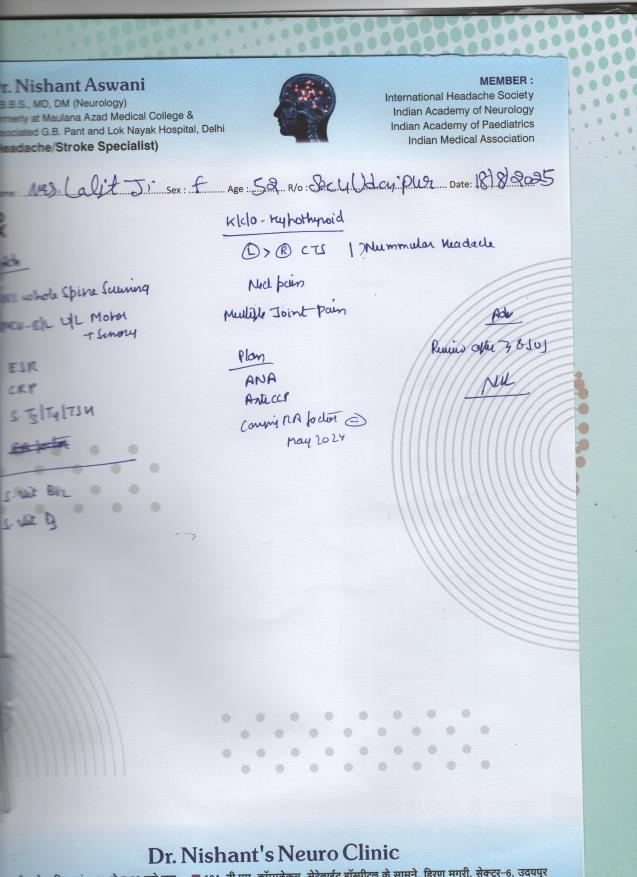 r. Nishant Aswani
B.B.S., MD, DM (Neurology)
merly at Maulana Azad Medical College &
sociated G.B. Pant and Lok Nayak Hospital, Delhi
Headache/Stroke Specialist)
MEMBER :
International Headache Society
Indian Academy of Neurology
Indian Academy of Paediatrics
Indian Medical Association
me Mrs. Lalit Ji Sex : f Age : 52 R/o : Sec 4 Udaipur Date: 18/8/2025
K/c/o - Hypothyroid
L > R CTS | ? Nummular Headache
Neck pain
Multiple Joint Pain
whole Spine Screening
U/L Motor
+ Sensory
ESR
CRP
S. T3/T4/TSH
S. Vit B12
S. Vit D3
Plan
ANA
Anti CCP
RA factor
May 2024
Adv
Review after
Dr. Nishant's Neuro Clinic
हॉस्पीटल के सामने, हिरण मगरी, सेक्टर-6, उदयपुर